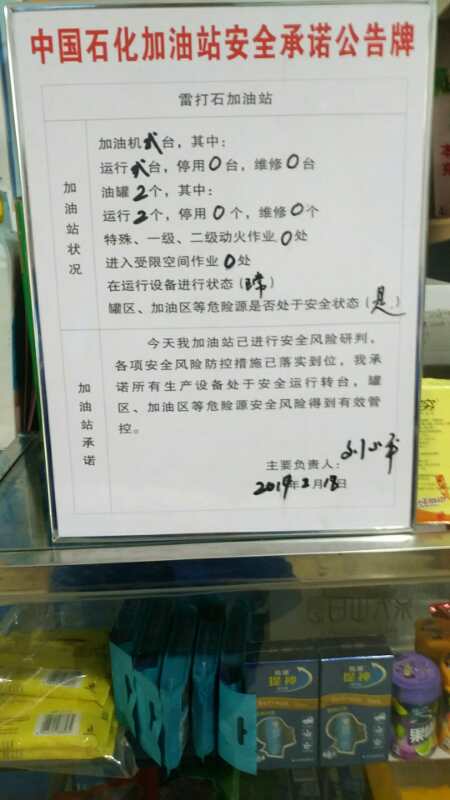 中国石化加油站安全承诺公告牌
雷打石加油站
加油站状况
加油机弍台，其中：
运行弍台，停用0台，维修0台
油罐2个，其中：
运行2个，停用0个，维修0个
特殊、一级、二级动火作业0处
进入受限空间作业0处
在运行设备进行状态（
罐区、加油区等危险源是否处于安全状态（是）
加油站承诺
今天我加油站已进行安全风险研判，
各项安全风险防控措施已落实到位，我承
诺所有生产设备处于安全运行转台，罐
区、加油区等危险源安全风险得到有效管
控。
主要负责人：
2019年2月18日
提神
提神
果